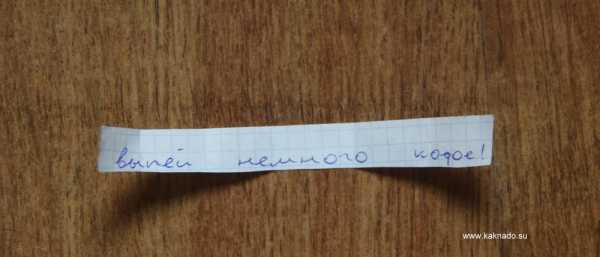 выпей немного кофе!
www.kaknado.su